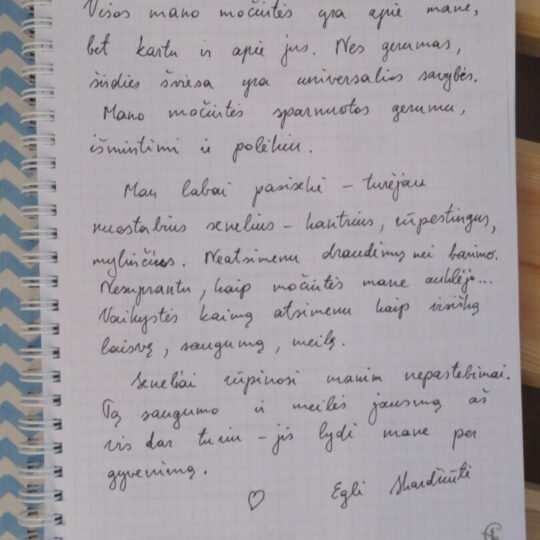 Visos mano močiutės yra apie mane,
bet kartu ir apie jus. Nes gerumas,
širdies šviesa yra universalios savybės.
Mano močiutės sparnuotos gerumu,
išmintimi ir polėkiu.
Man labai pasisekė – turėjau
nuostabius senelius – kantrius, rūpestingus,
mylinčius. Neatsimenu draudimų nei barimo.
Nesuprantu, kaip močiutės mane auklėjo...
Vaikystės kaimą atsimenu kaip visišką
laisvę, saugumą, meilę.
Seneliai rūpinosi manim nepastebimai.
Tą saugumo ir meilės jausmą aš
vis dar turiu – jis lydi mane per
gyvenimą.
♡ Eglė Skardžiūtė